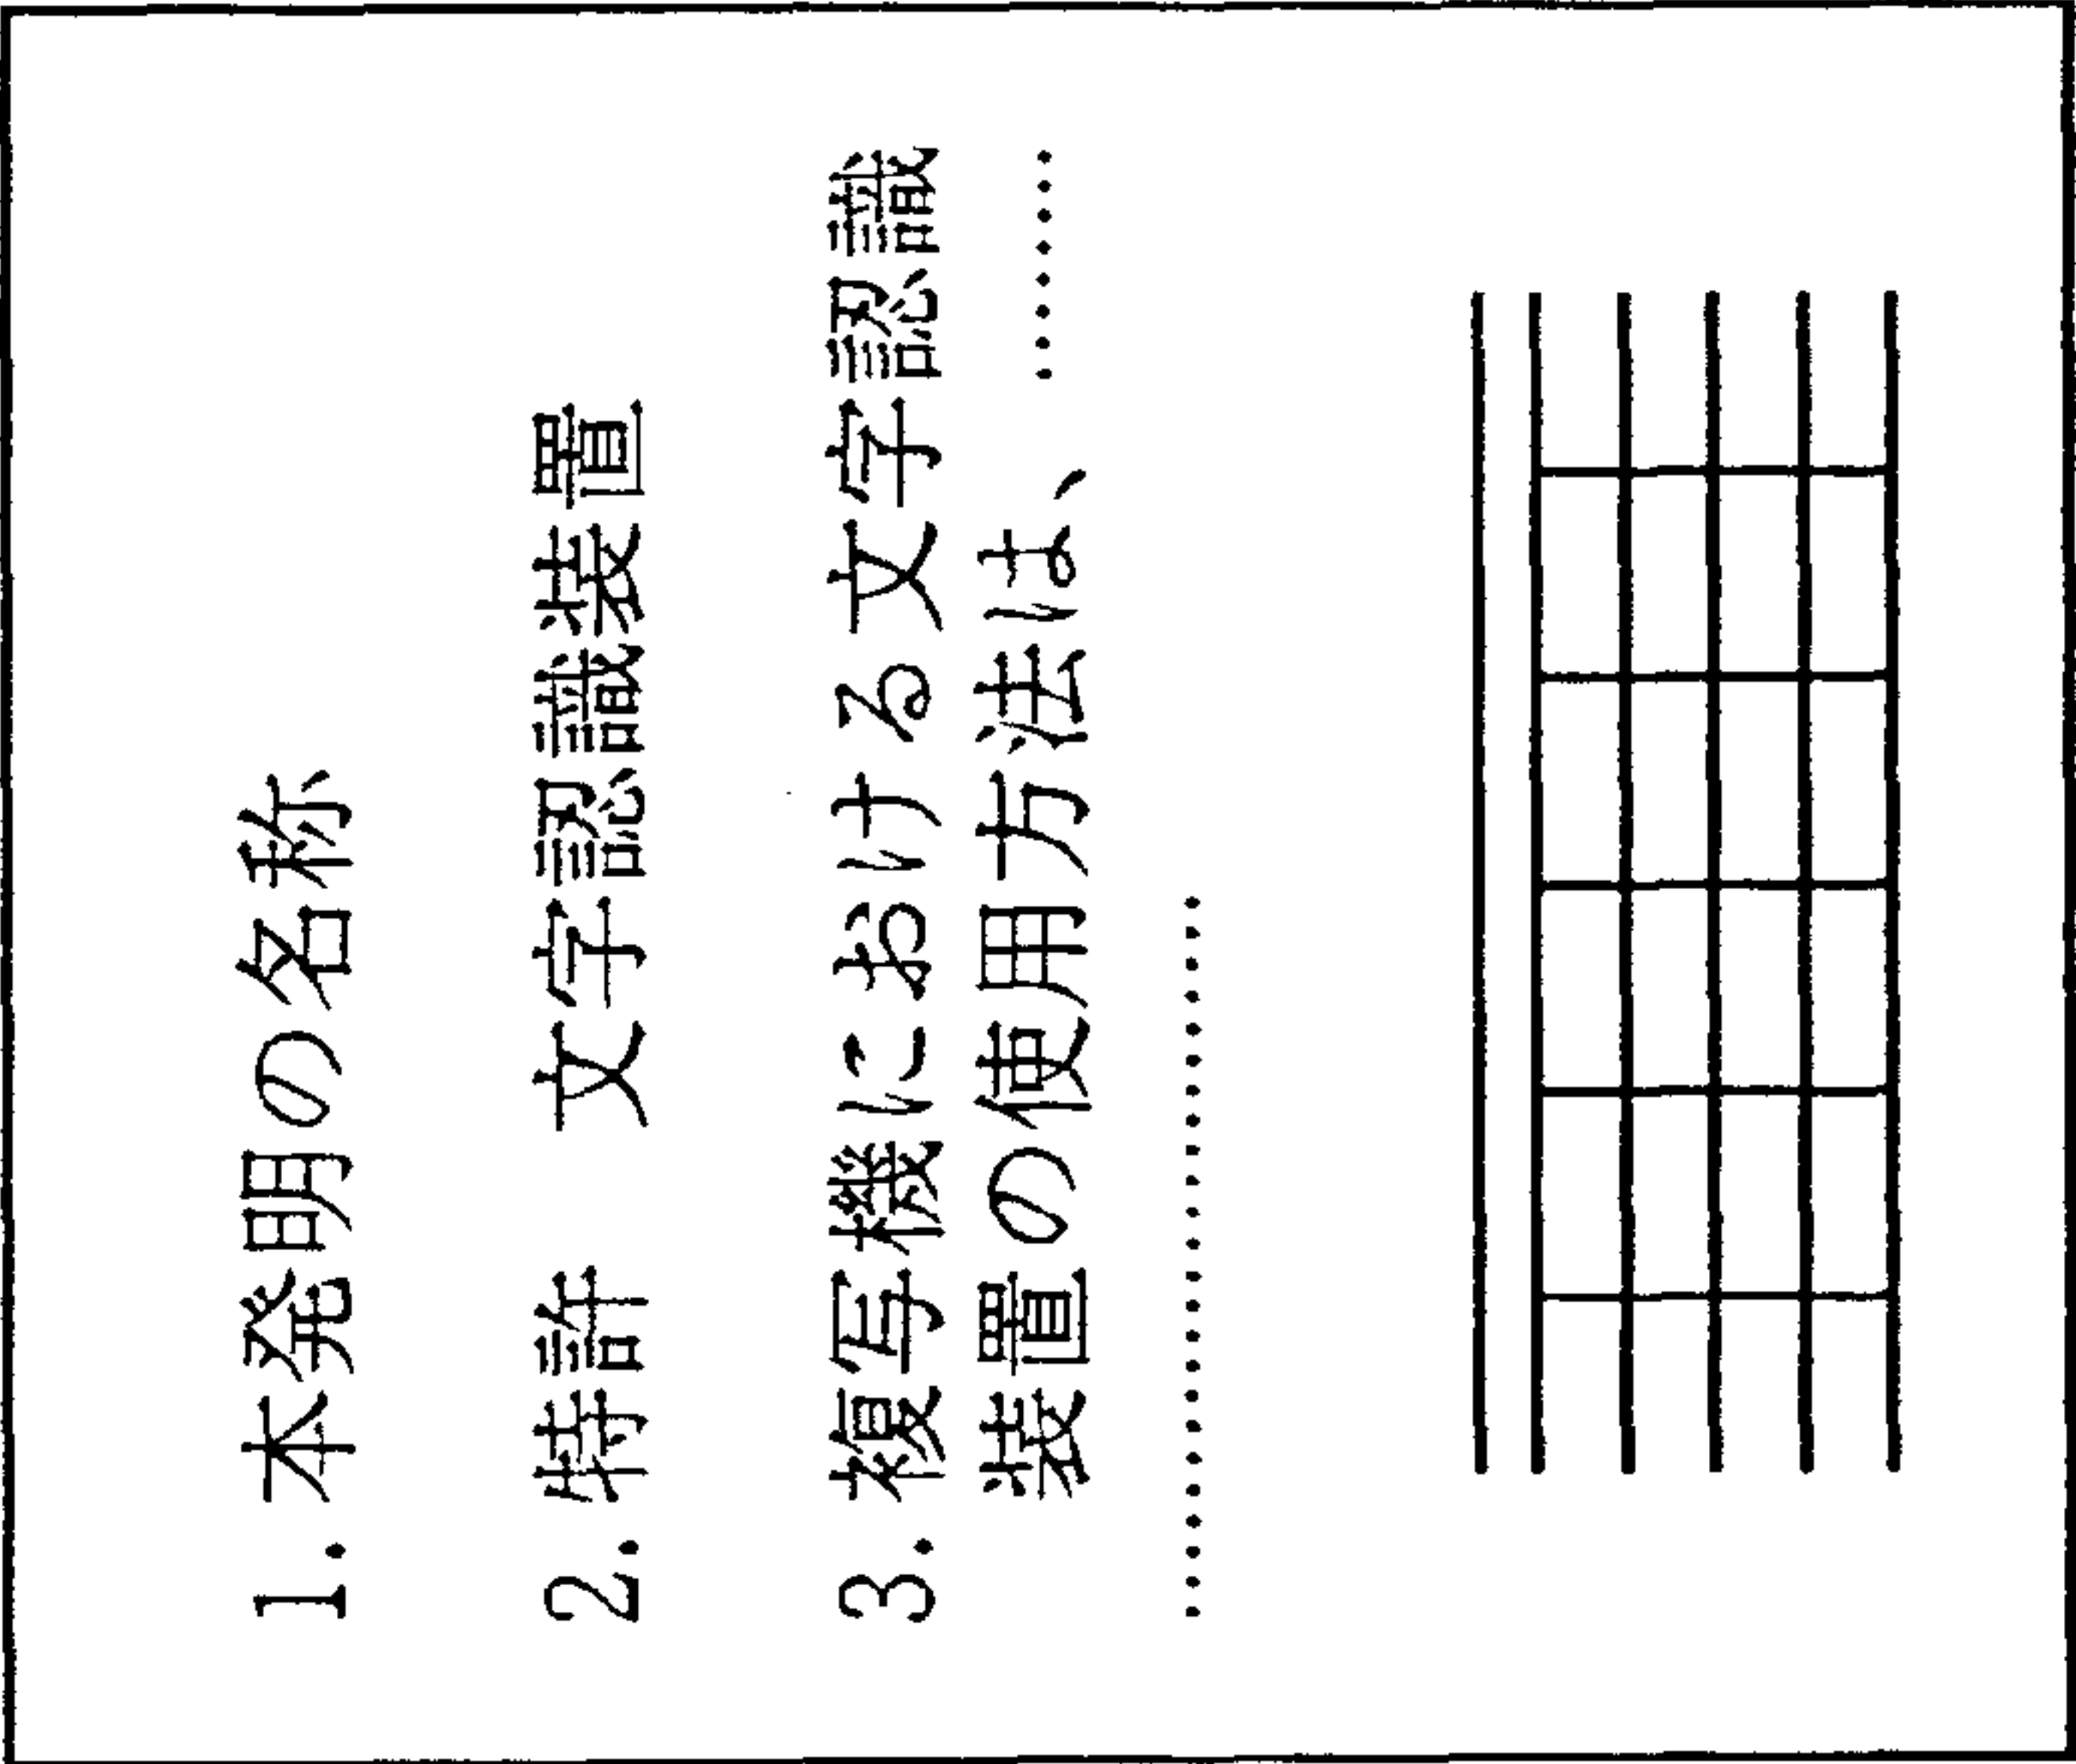 1.本発明の名称
2.特許 文字認識装置
3.複写機における文字認識
装置の使用方法は、 ········
························